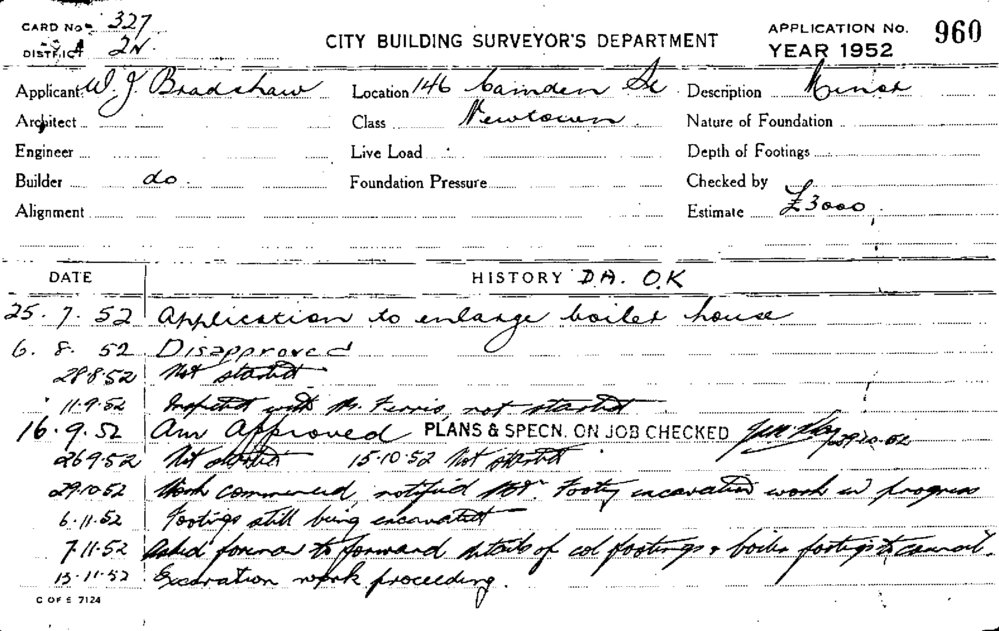 CARD No 327
DISTRICT 2N.
CITY BUILDING SURVEYOR'S DEPARTMENT
APPLICATION No. 960
YEAR 1952
Applicant W. J. Bradshaw Location 146 Camden St Description
Architect Class Newtown Nature of Foundation
Engineer Live Load Depth of Footings
Builder do. Foundation Pressure Checked by
Alignment Estimate £3000
DATE HISTORY D.A. O.K
25. 7. 52 Application to enlarge boiler house
6. 8. 52 Disapproved
28.8.52 Not started
11.9.52 Inspected with Mr. Ferris, not started
16. 9. 52 Approved PLANS & SPECN. ON JOB CHECKED 29.10.52
26.9.52 Not started 15.10.52 Not started
29.10.52 Work commenced, notified Footing excavation work in progress
6.11.52 Footings still being excavated
7.11.52 Asked foreman to forward details of col footings & boiler footings to council.
13.11.52 Excavation work proceeding.
C OF S 7124